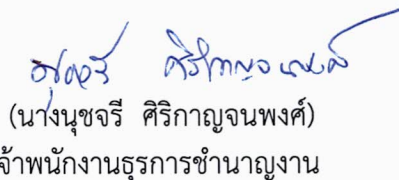 นุชจรี ศิริกาญจนพงศ์
(นางนุชจรี ศิริกาญจนพงศ์)
จ้าพนักงานธุรการชำนาญงาน